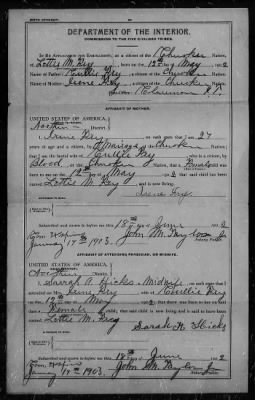 DEPARTMENT OF THE INTERIOR.
COMMISSION TO THE FIVE CIVILIZED TRIBES.
IN RE APPLICATION FOR ENROLLMENT, as a citizen of the Cherokee Nation,
of Lottie M. Key, born on the 12th day of May, 1902
Name of Father: Cullie Key, a citizen of the Cherokee Nation.
Name of Mother: Irene Key, a citizen of the Cherokee Nation.
Claremore I.T.
AFFIDAVIT OF MOTHER.
UNITED STATES OF AMERICA,
Northern District.
I, Irene Key, on oath state that I am 27
years of age and a citizen, by Marriage, of the Cherokee Nation;
that I am the lawful wife of Cullie Key, who is a citizen, by
Blood, of the Cherokee Nation; that a Female child was
born to me on the 12th day of May, 1902, that said child has been
named Lottie M. Key, and is now living.
Irene Key
Subscribed and sworn to before me this 18th day of June, 1902
January 17th 1903. John M. Taylor
Notary Public.
AFFIDAVIT OF ATTENDING PHYSICIAN, OR MIDWIFE.
UNITED STATES OF AMERICA,
Northern District.
I, Sarah A. Hicks, a Midwife, on oath state that I
attended on Mrs. Irene Key, wife of Cullie Key,
on the 12th day of May, 1902, that there was born to her on
said date a Female child; that said child is now living and is said to have been
named Lottie M. Key
Sarah A Hicks
Subscribed and sworn to before me this 18th day of June, 1902
January 17th 1903. John M. Taylor